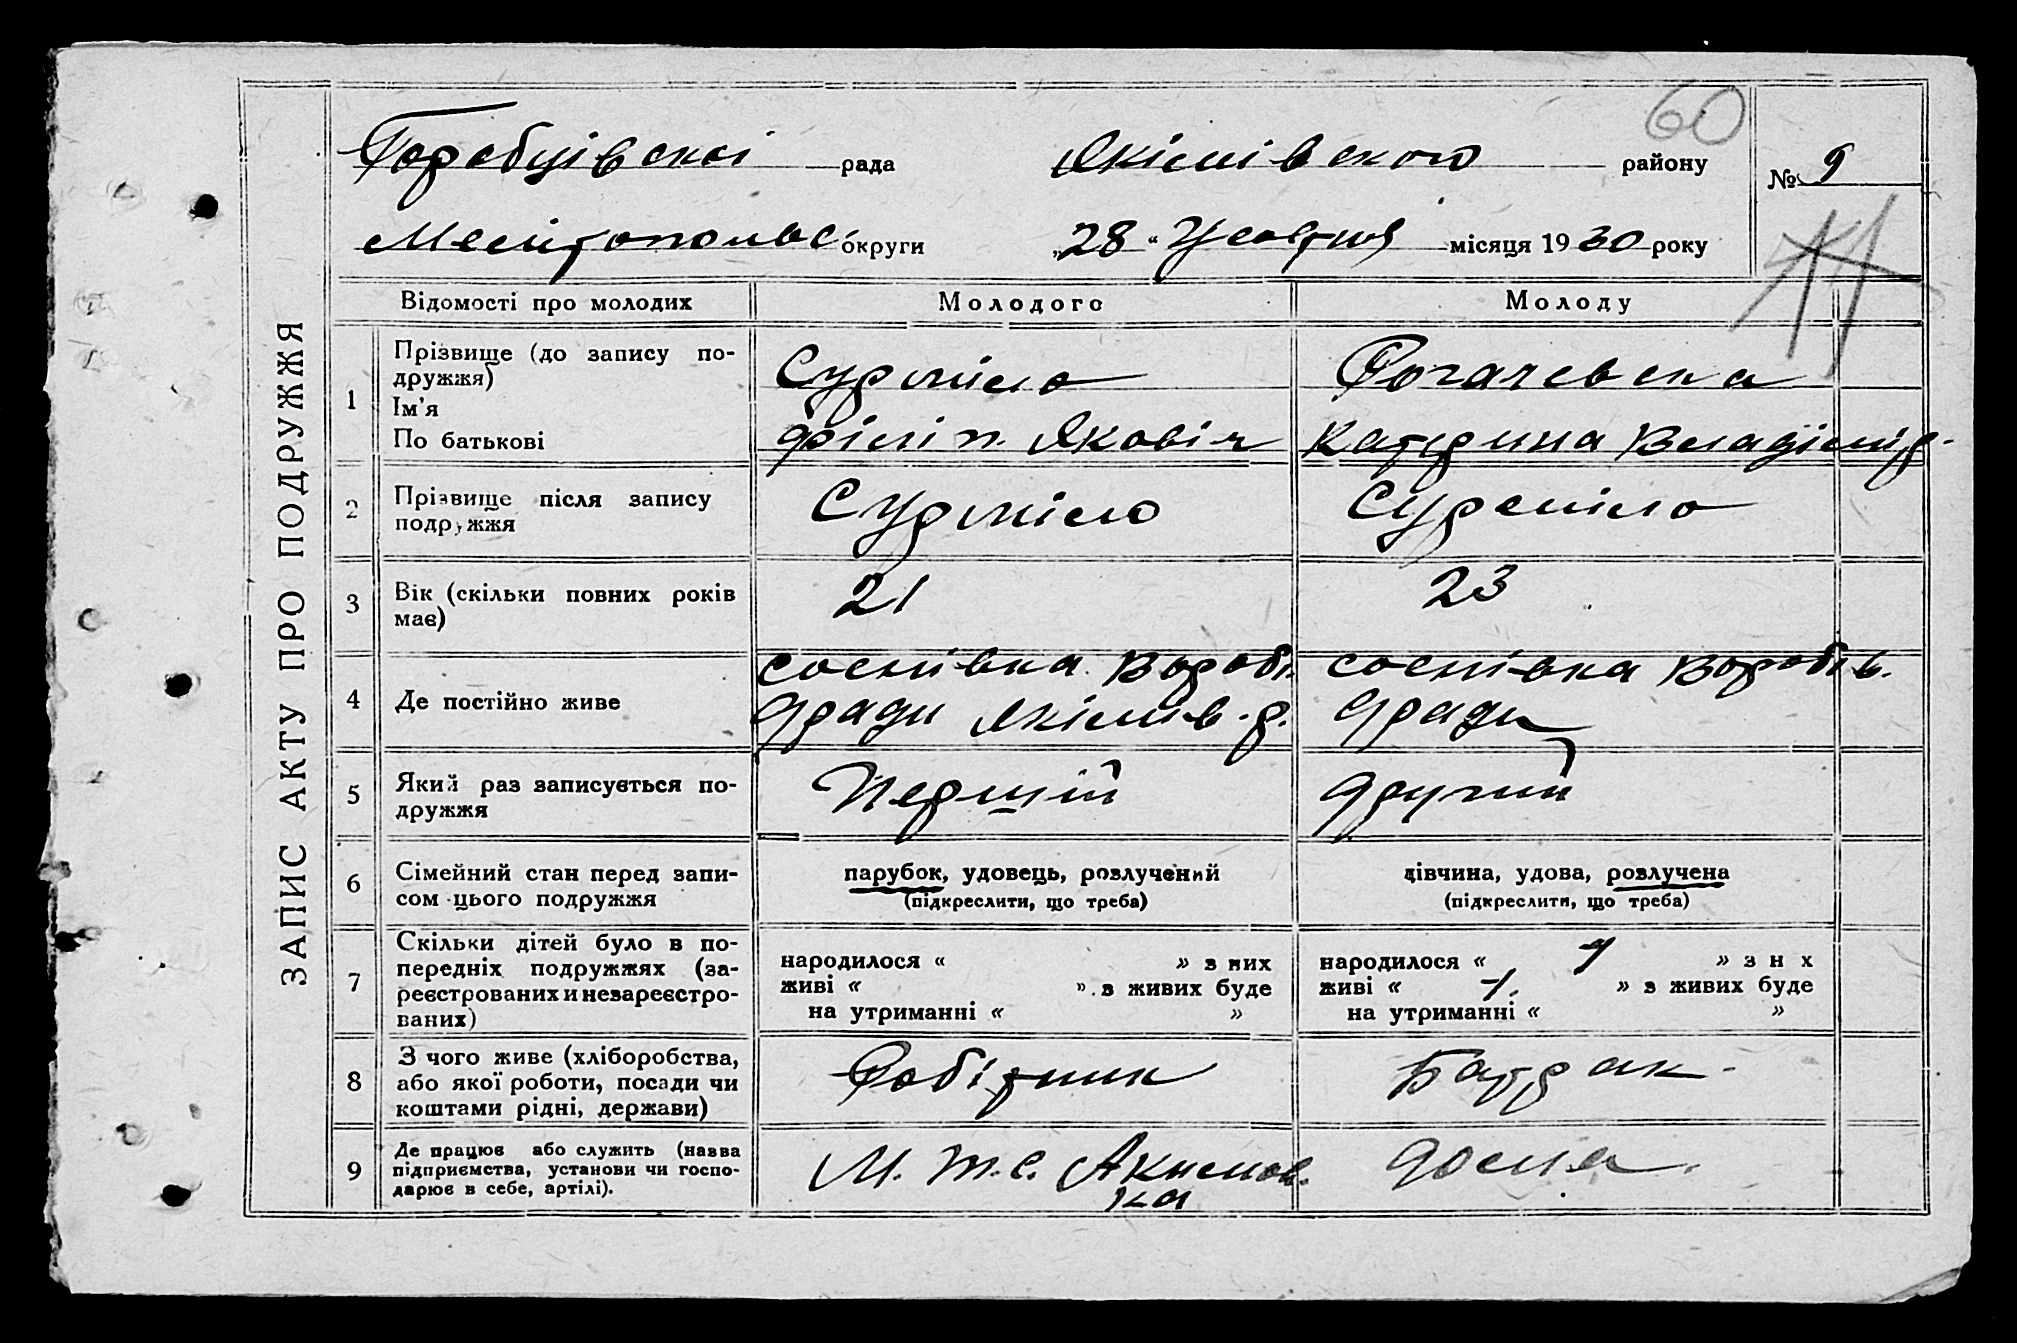 60
Горобцівскої рада Якімівского району № 9
Мелітопольс округи „28“ Жовтня місяця 1930 року
ЗАПИС АКТУ ПРО ПОДРУЖЖЯ
Відомості про молодих Молодого Молоду
1 Прізвище (до запису по-
дружжя) Сурміло Рогачевска
Ім'я
По батькові Філіп Яковіч Катерина Владімір-
2 Прізвище після запису
подружжя Сурміло Сурміло
3 Вік (скільки повних років
має) 21 23
4 Де постійно живе
соснівка Воробі.
Сради Якімів. р.
соснівка Воробів.
Сради
5 Який раз записується по-
дружжя Першій другий
6 Сімейний стан перед запи-
сом цього подружжя
парубок, удовець, розлучений
(підкреслити, що треба)
дівчина, удова, розлучена
(підкреслити, що треба)
7 Скільки дітей було в по-
передніх подружжях (за-
реєстрованих и незареєстро-
ваних)
народилося « » з них
живі « » з живих буде
на утриманні « »
народилося « 1 » з н х
живі « 1. » з живих буде
на утриманні « »
8 З чого живе (хліборобства,
або якої роботи, посади чи
коштами рідні, держави)
Робітник Батрак
9 Де працює або служить (назва
підприємства, установи чи госпо-
дарює в себе, артілі).
М. Т. С. Акимов.
ка
дома.